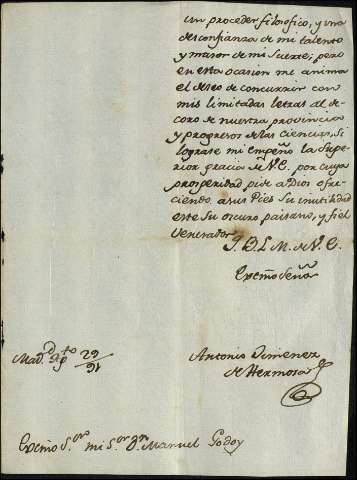 un proceder filosofico, y una
desconfianza de mi talento
y maior de mi suerte; pero
en esta ocasion me anima
el deseo de concurrir con
mis limitadas letras al de
coro de nuestra provincia
y progresos de las ciencias, si
lograse mi empeño la Supe
rior gracia de V.E. por cuya
prosperidad pide a Dios ofre
ciendo a sus Pies su inutilidad
este su oscuro paisano, y fiel
Venerador
B. L. M. de V. E.
Exc̃mo Señor
Antonio Ximenez
de Hermosa
Mad.d Ag.to 29/91
Exc̃mo S.or mi S.or D.n Manuel Godoy